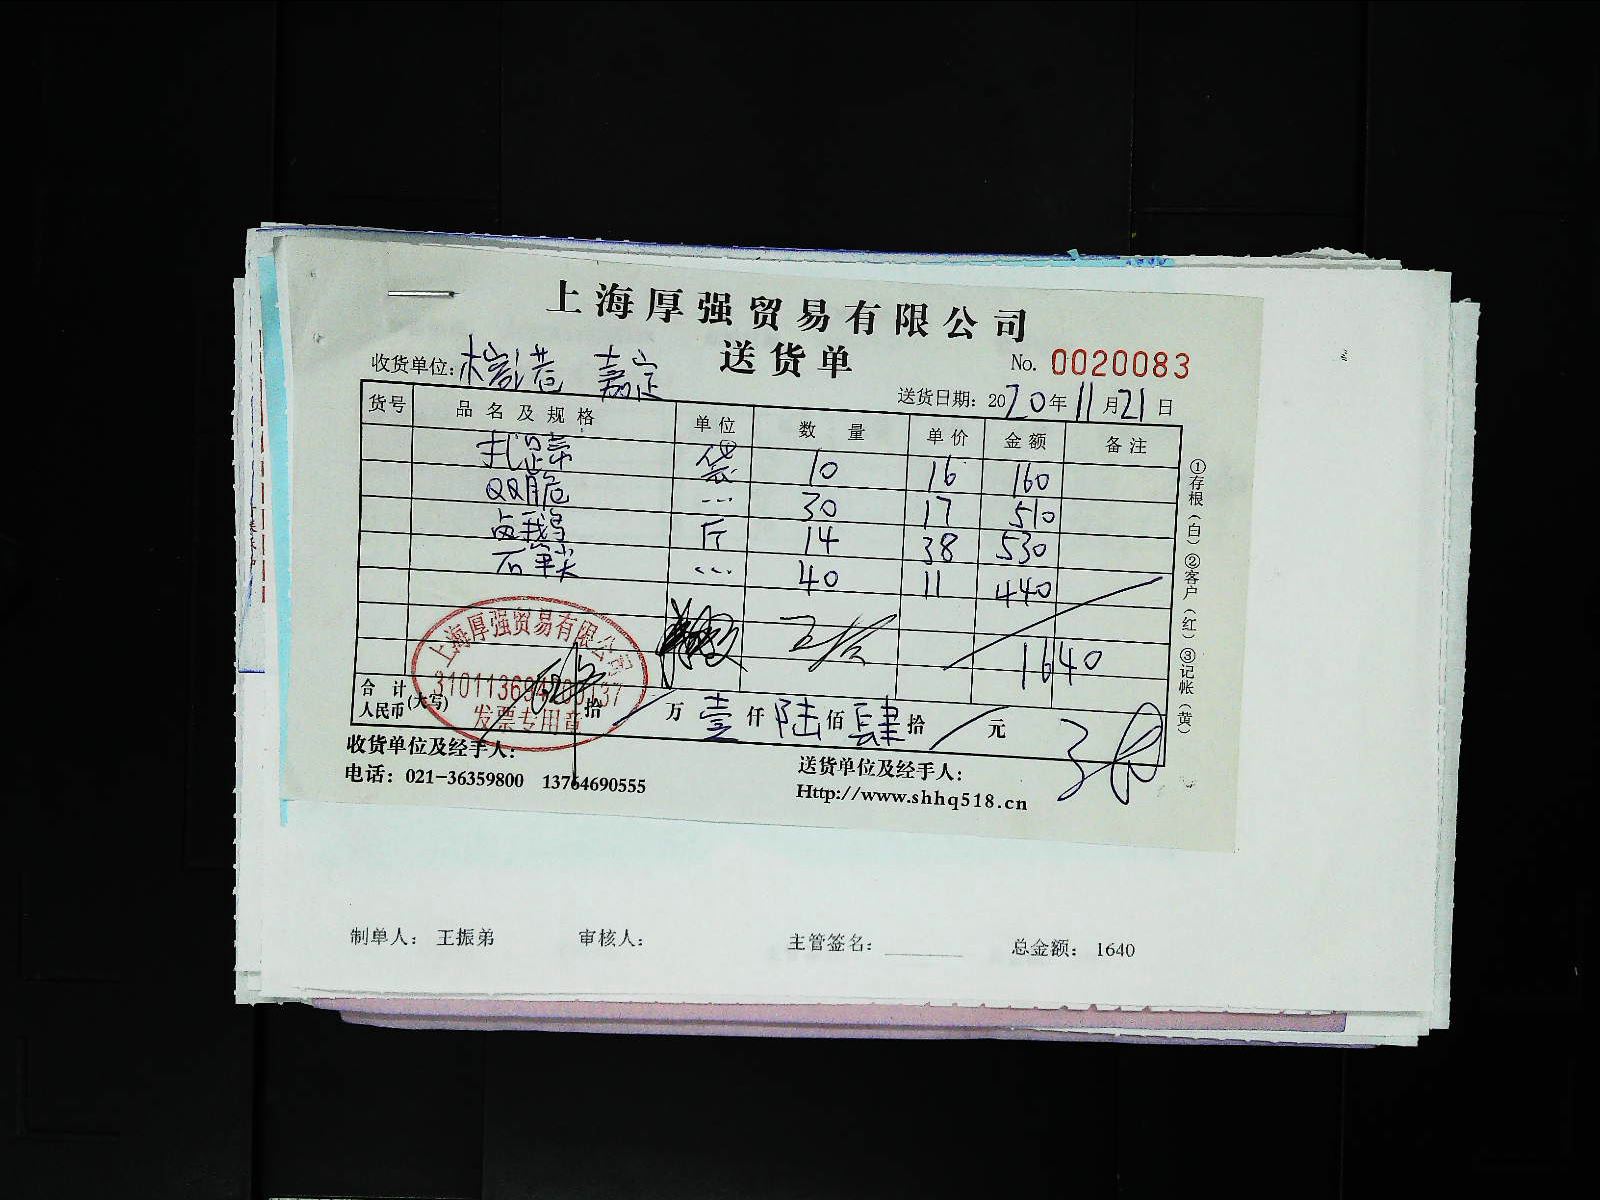 上海厚强贸易有限公司
送货单
No. 0020083
收货单位: 嘉定
送货日期: 2020年11月21日
货号 品名及规格 单位 数量 单价 金额 备注
扎蹄 袋 10 16 160
QQ脆 〃 30 17 510
卤鹅 斤 14 38 530
石笋尖 〃 40 11 440
1640
上海厚强贸易有限公司
发票专用章
合计
人民币 (大写) 拾 / 万 壹 仟 陆 佰 肆 拾 / 元
收货单位及经手人:
送货单位及经手人:
电话: 021-36359800 13764690555
Http://www.shhq518.cn
①存根(白)②客户(红)③记帐(黄)
制单人: 王振弟 审核人: 主管签名: 总金额: 1640